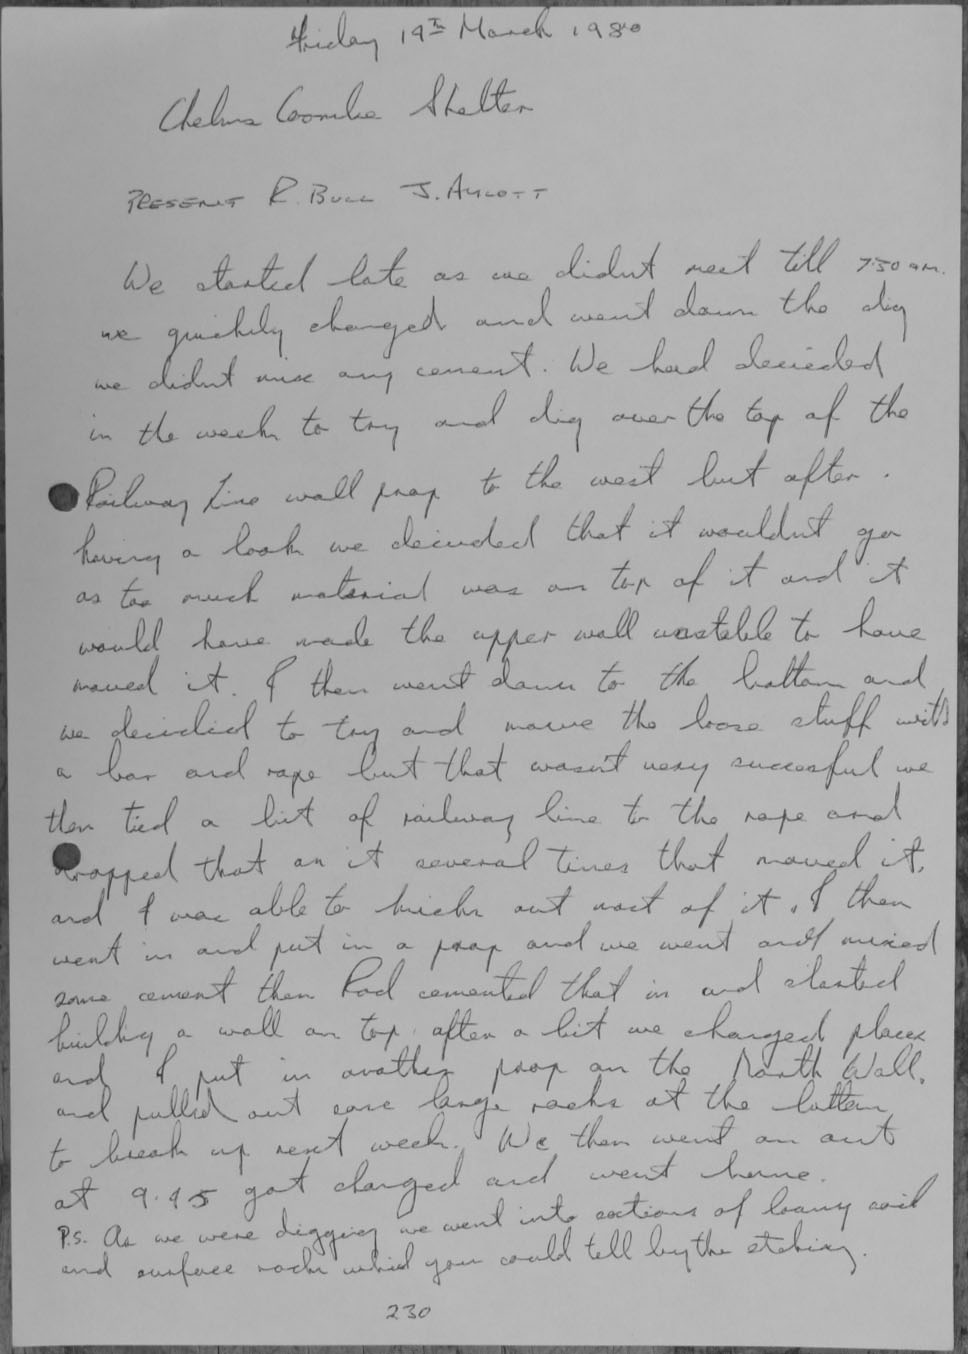 Friday 14th March 1980
Chelms Coombe Shelter
PRESENT R. BULL J. AYLOTT
We started late as we didnt meet till 7:50 am.
we quickly changed and went down the dig
we didnt mix any cement. We had decieded
in the week to try and dig over the top of the
Railway Line wall prop to the west but after.
having a look we decieded that it wouldnt go
as too much material was on top of it and it
would have made the upper wall unstable to have
moved it. I then went down to the bottom and
we decidied to try and move the loose stuff with
a bar and rope but that wasn't very successful we
then tied a bit of railway line to the rope and
dropped that on it several times that moved it,
and I was able to brick out most of it. I then
went in and put in a prop and we went and mixed
some cement then Rod cemented that in and started
building a wall on top. after a bit we changed places
and I put in another prop on the North Wall,
and pulled out some large rocks at the bottom
to break up next week. We then went on out
at 9.45 got changed and went home.
P.S. As we were digging we went into sections of loamy soil
and surface rocks which you could tell by the etching.
230